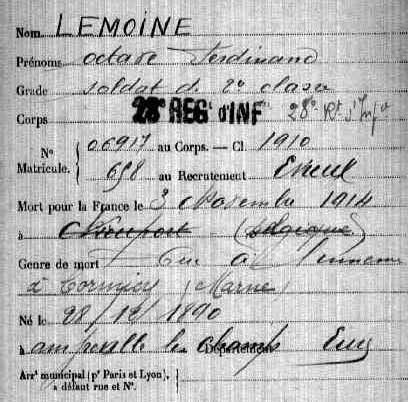 Nom LEMOINE
Prénoms Octave Ferdinand
Grade soldat de 2e classe
Corps 28e REG. d'INF 28e Rt d'Infie
No Matricule. 06917 au Corps. — Cl. 1910
698 au Recrutement Evreux
Mort pour la France le 3 Novembre 1914
à Nieuport (Belgique)
Genre de mort Tué à l'ennemi
à Cormicy (Marne)
Né le 28/12/1890
à ampeville les champs Eure
Département
Arrt municipal (pr Paris et Lyon),
à défaut rue et No.